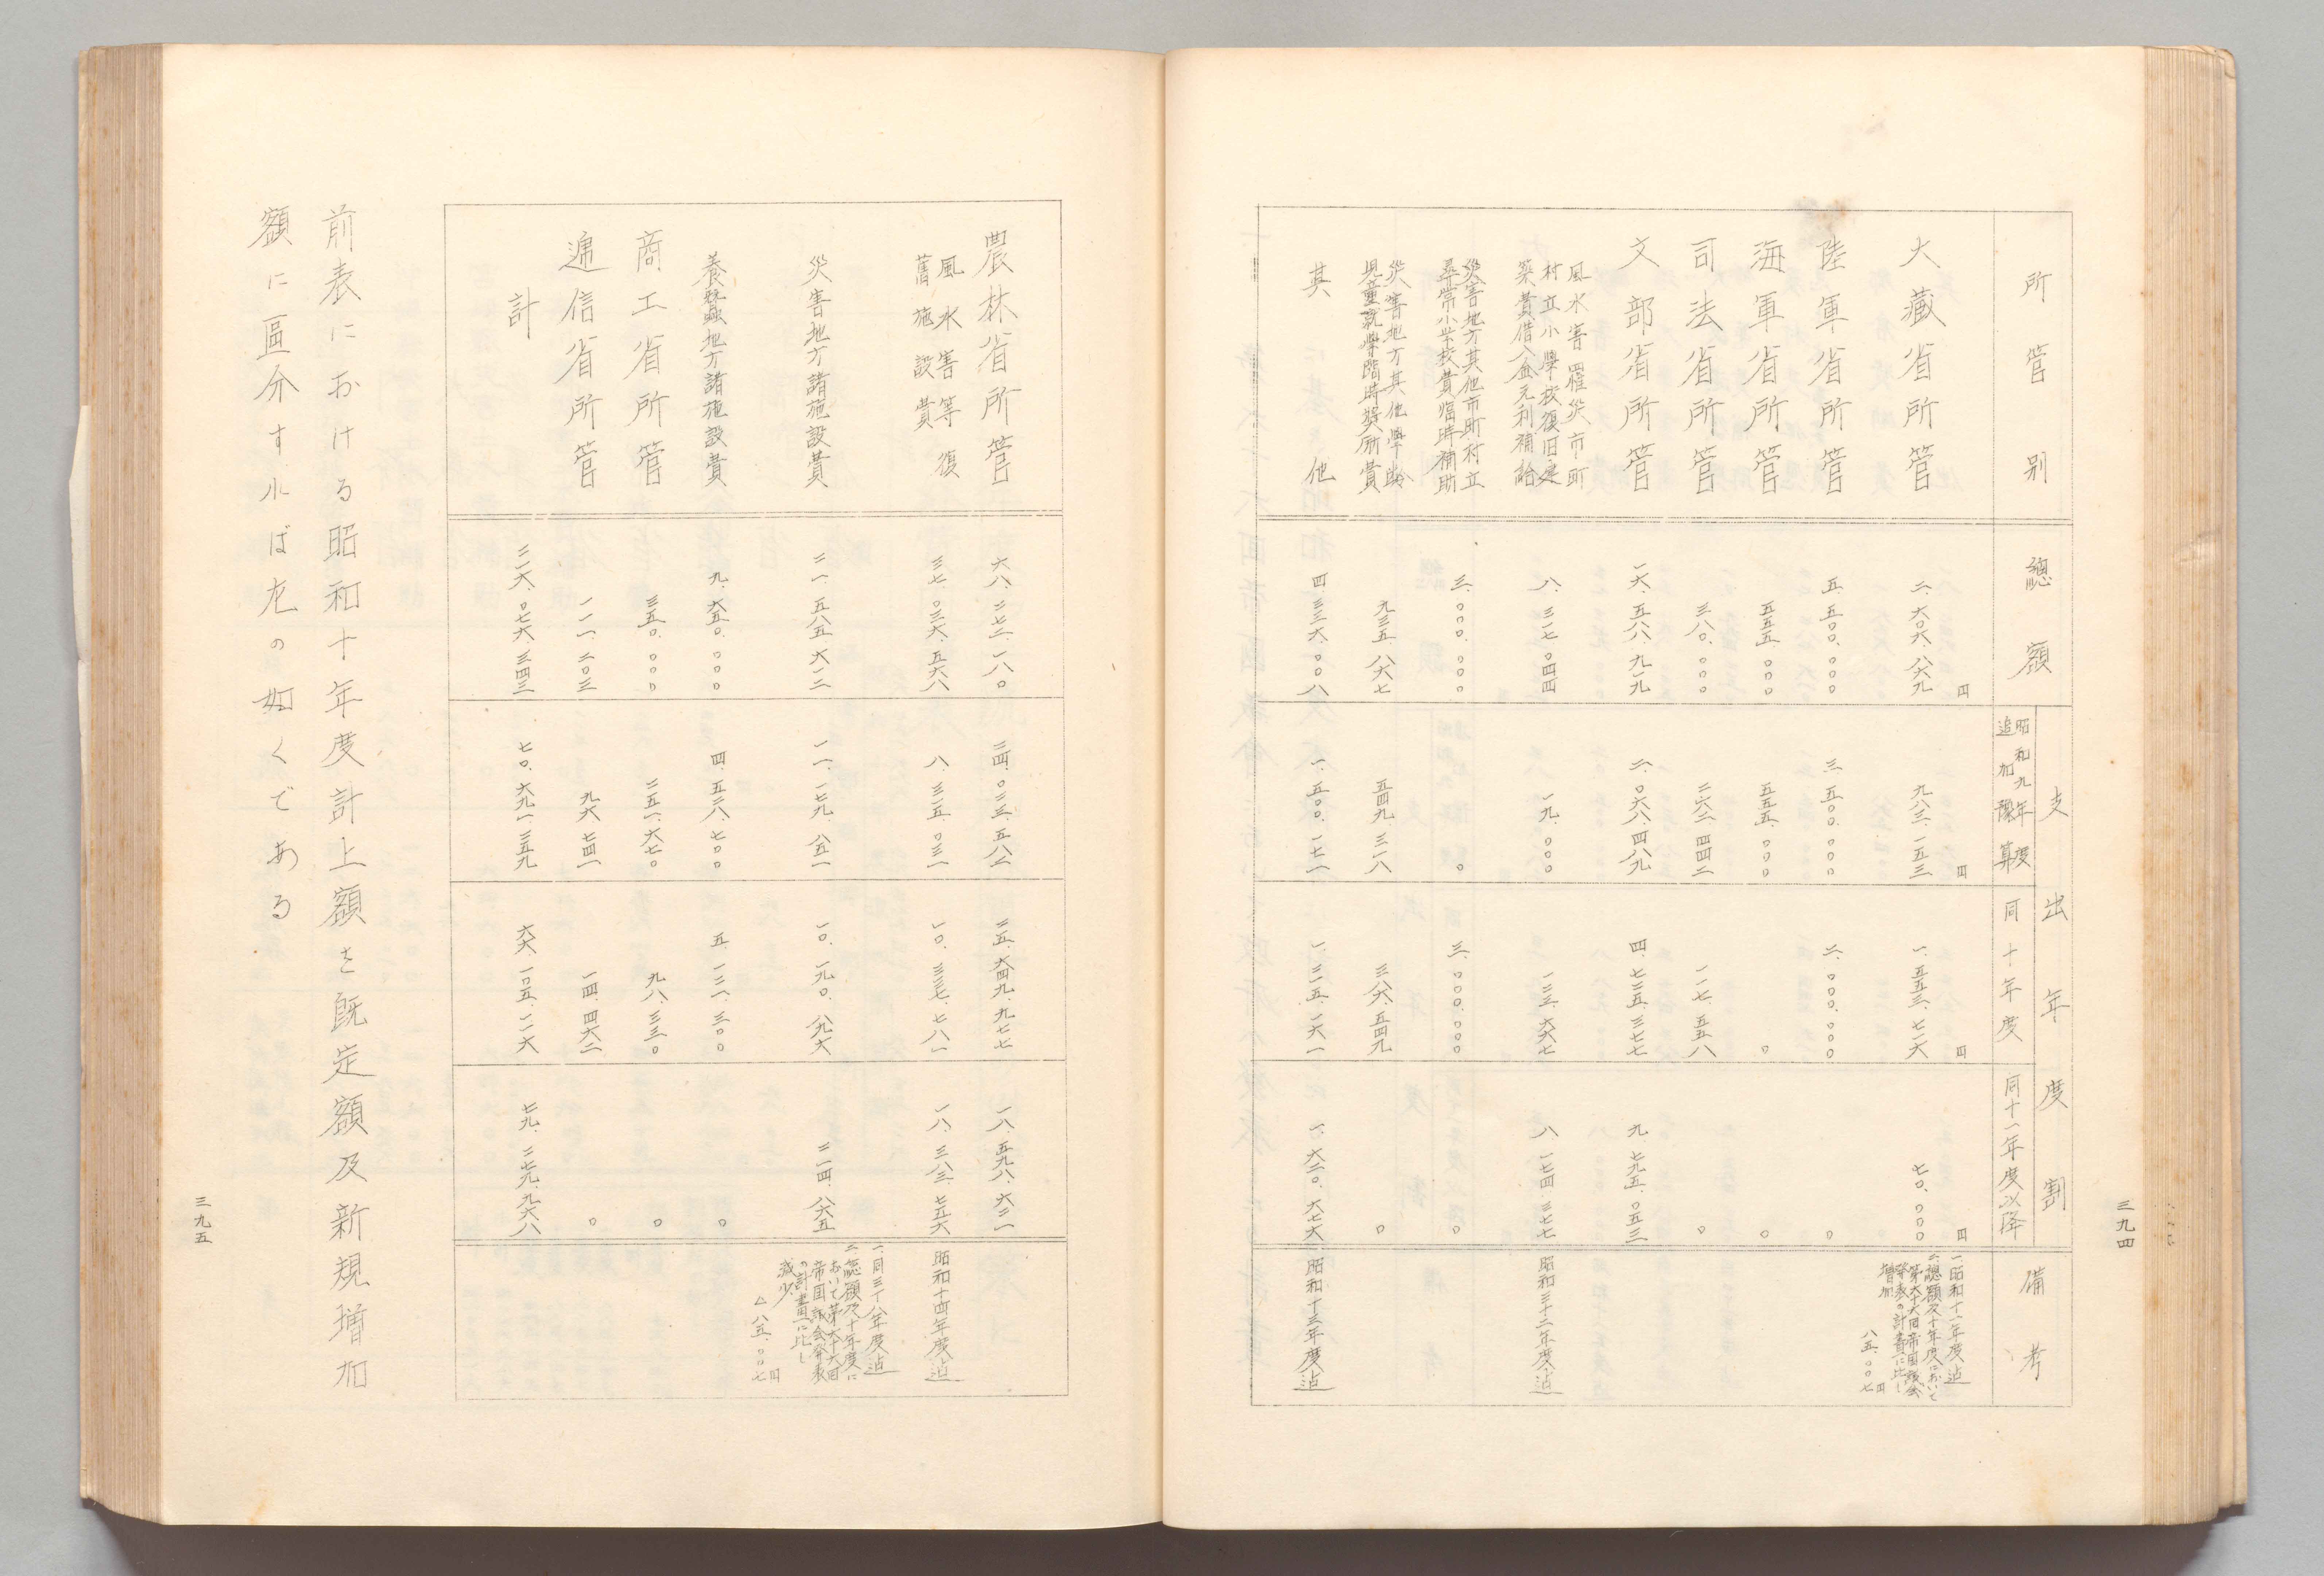 三九四
所管別
總額
支出年度割
昭和九年度
追加豫算
同十年度
同十一年度以降
備考
大藏省所管
円
二、六〇六、八六九
円
九八三、一五三
円
一、五五三、七一六
円
七〇、〇〇〇
一、昭和十一年度迠
二、總額及十年度において
第六十六囘帝国議会
發表の計畫に比し
増加
円
八五、〇〇七
陸軍省所管
五、五〇〇、〇〇〇
三、五〇〇、〇〇〇
二、〇〇〇、〇〇〇
〇
海軍省所管
五五五、〇〇〇
五五五、〇〇〇
〇
〇
司法省所管
三八〇、〇〇〇
二六二、四四二
一一七、五五八
〇
文部省所管
一六、五八八、九一九
二、〇六八、四八九
四、七二五、三七七
九、七九五、〇五三
風水害罹災市町
村立小學校復旧建
築費借入金元利補給
八、三一七、〇四四
一九、〇〇〇
一二三、六六七
八、一七四、三七七
昭和三十二年度迠
災害地方其他市町村立
尋常小学校費臨時補助
三、〇〇〇、〇〇〇
〇
三、〇〇〇、〇〇〇
〇
災害地方其他學齡
児童就學臨時奬励費
九三五、八六七
五四九、三一八
三八六、五四九
〇
其他
四、三三六、〇〇八
一、五〇〇、一七一
一、二一五、一六一
一、六二〇、六七六
昭和十三年度迠
農林省所管
六八、二七二、一八〇
二四、〇二三、五八二
二五、六四九、九七七
一八、五九八、六二一
風水害等復
舊施設費
三七、〇三六、五六八
八、三一五、〇三一
一〇、三三七、七八一
一八、三八三、七五六
昭和十四年度迠
災害地方諸施設費
二一、五八五、六一二
一一、一七九、八五一
一〇、一九〇、八九六
二一四、八六五
一、同三十八年度迠
二、總額及十年度に
おいて第六十六囘
帝国議会發表
の計畫に比し
減少
円
△八五、〇〇七
養蠶地方諸施設費
九、六五〇、〇〇〇
四、五二八、七〇〇
五、一二一、三〇〇
〇
商工省所管
三五〇、〇〇〇
二五一、六七〇
九八、三三〇
〇
遞信省所管
一一一、二〇三
九六、七四一
一四、四六二
〇
計
二一六、〇七六、三四三
七〇、六九一、二五九
六六、一〇五、一一六
七九、二七九、九六八
前表における昭和十年度計上額を既定額及新規増加
額に區分すれば左の如くである
三九五